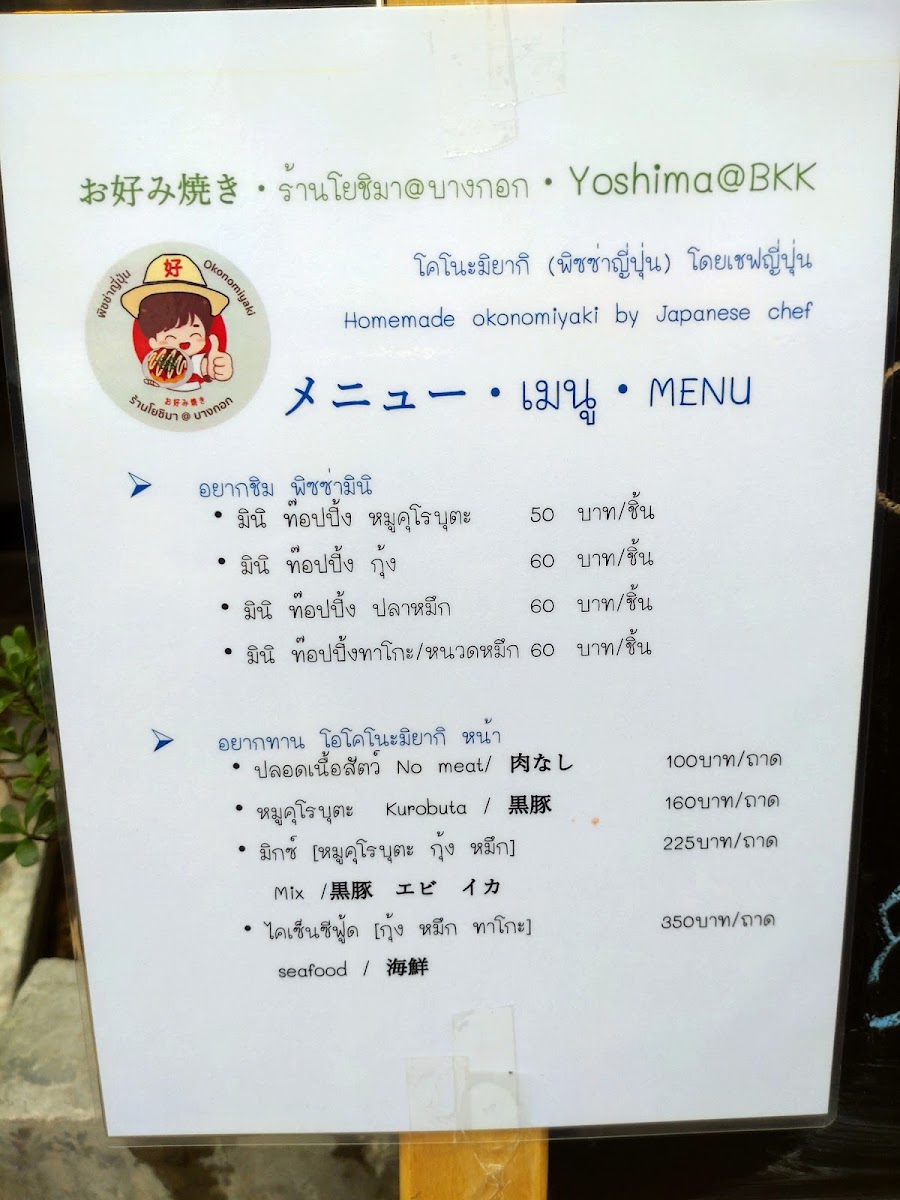 お好み焼き・ร้านโยชิมา@บางกอก・Yoshima@BKK
พิซซ่าญี่ปุ่น
Okonomiyaki
好
お好み焼き
ร้านโยชิมา @ บางกอก
โคโนะมิยากิ (พิซซ่าญี่ปุ่น) โดยเชฟญี่ปุ่น
Homemade okonomiyaki by Japanese chef
メニュー・เมนู・MENU
อยากชิม พิซซ่ามินิ
• มินิ ท๊อปปิ้ง หมูคุโรบุตะ 50 บาท/ชิ้น
• มินิ ท๊อปปิ้ง กุ้ง 60 บาท/ชิ้น
• มินิ ท๊อปปิ้ง ปลาหมึก 60 บาท/ชิ้น
• มินิ ท๊อปปิ้งทาโกะ/หนวดหมึก 60 บาท/ชิ้น
อยากทาน โอโคโนะมิยากิ หน้า
• ปลอดเนื้อสัตว์ No meat/ 肉なし 100บาท/ถาด
• หมูคุโรบุตะ Kurobuta / 黒豚 160บาท/ถาด
• มิกซ์ [หมูคุโรบุตะ กุ้ง หมึก] 225บาท/ถาด
Mix /黒豚 エビ イカ
• ไคเซ็นซีฟู้ด [กุ้ง หมึก ทาโกะ] 350บาท/ถาด
seafood / 海鮮